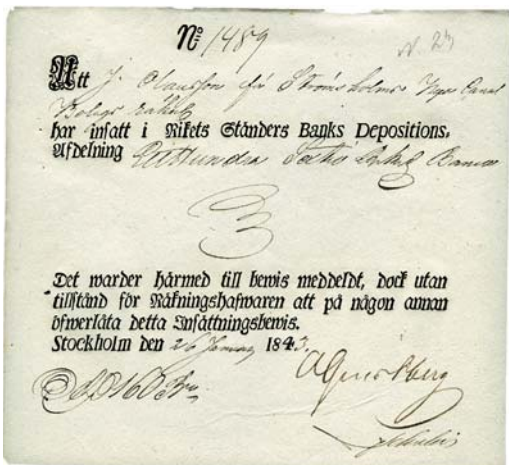 No 1489
N. 23
Att J. Clauson för Strömsholms Nya Canal
Bolags
har insatt i Rikets Ständers Banks Depositions,
Afdelning Ett Hundra Sextio Banco
Det warder härmed till bewis meddeldt, dock utan
tillstånd för Räkningshafwaren att på någon annan
öfwerlåta detta Insättningsbewis.
Stockholm den 26 January 1843.
160 Bco